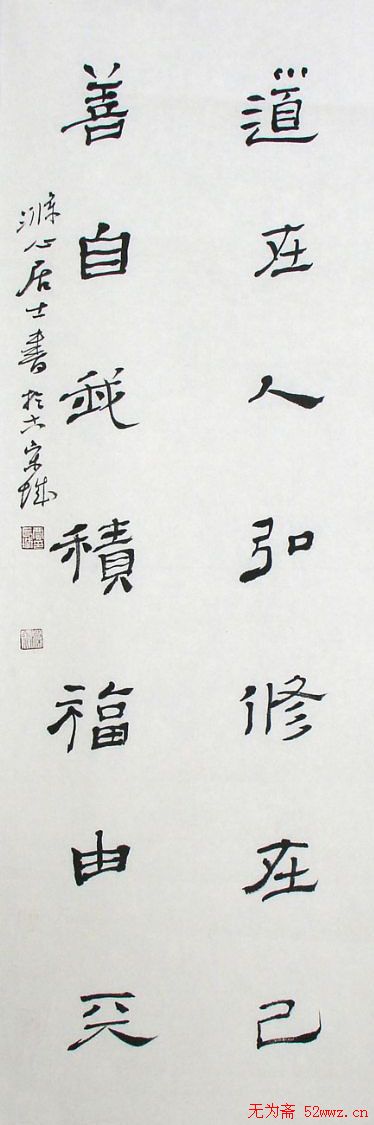 道在人弘修在己
善自我積福由天
滌心居士書於古宋城
无为斋 52wwz.cn